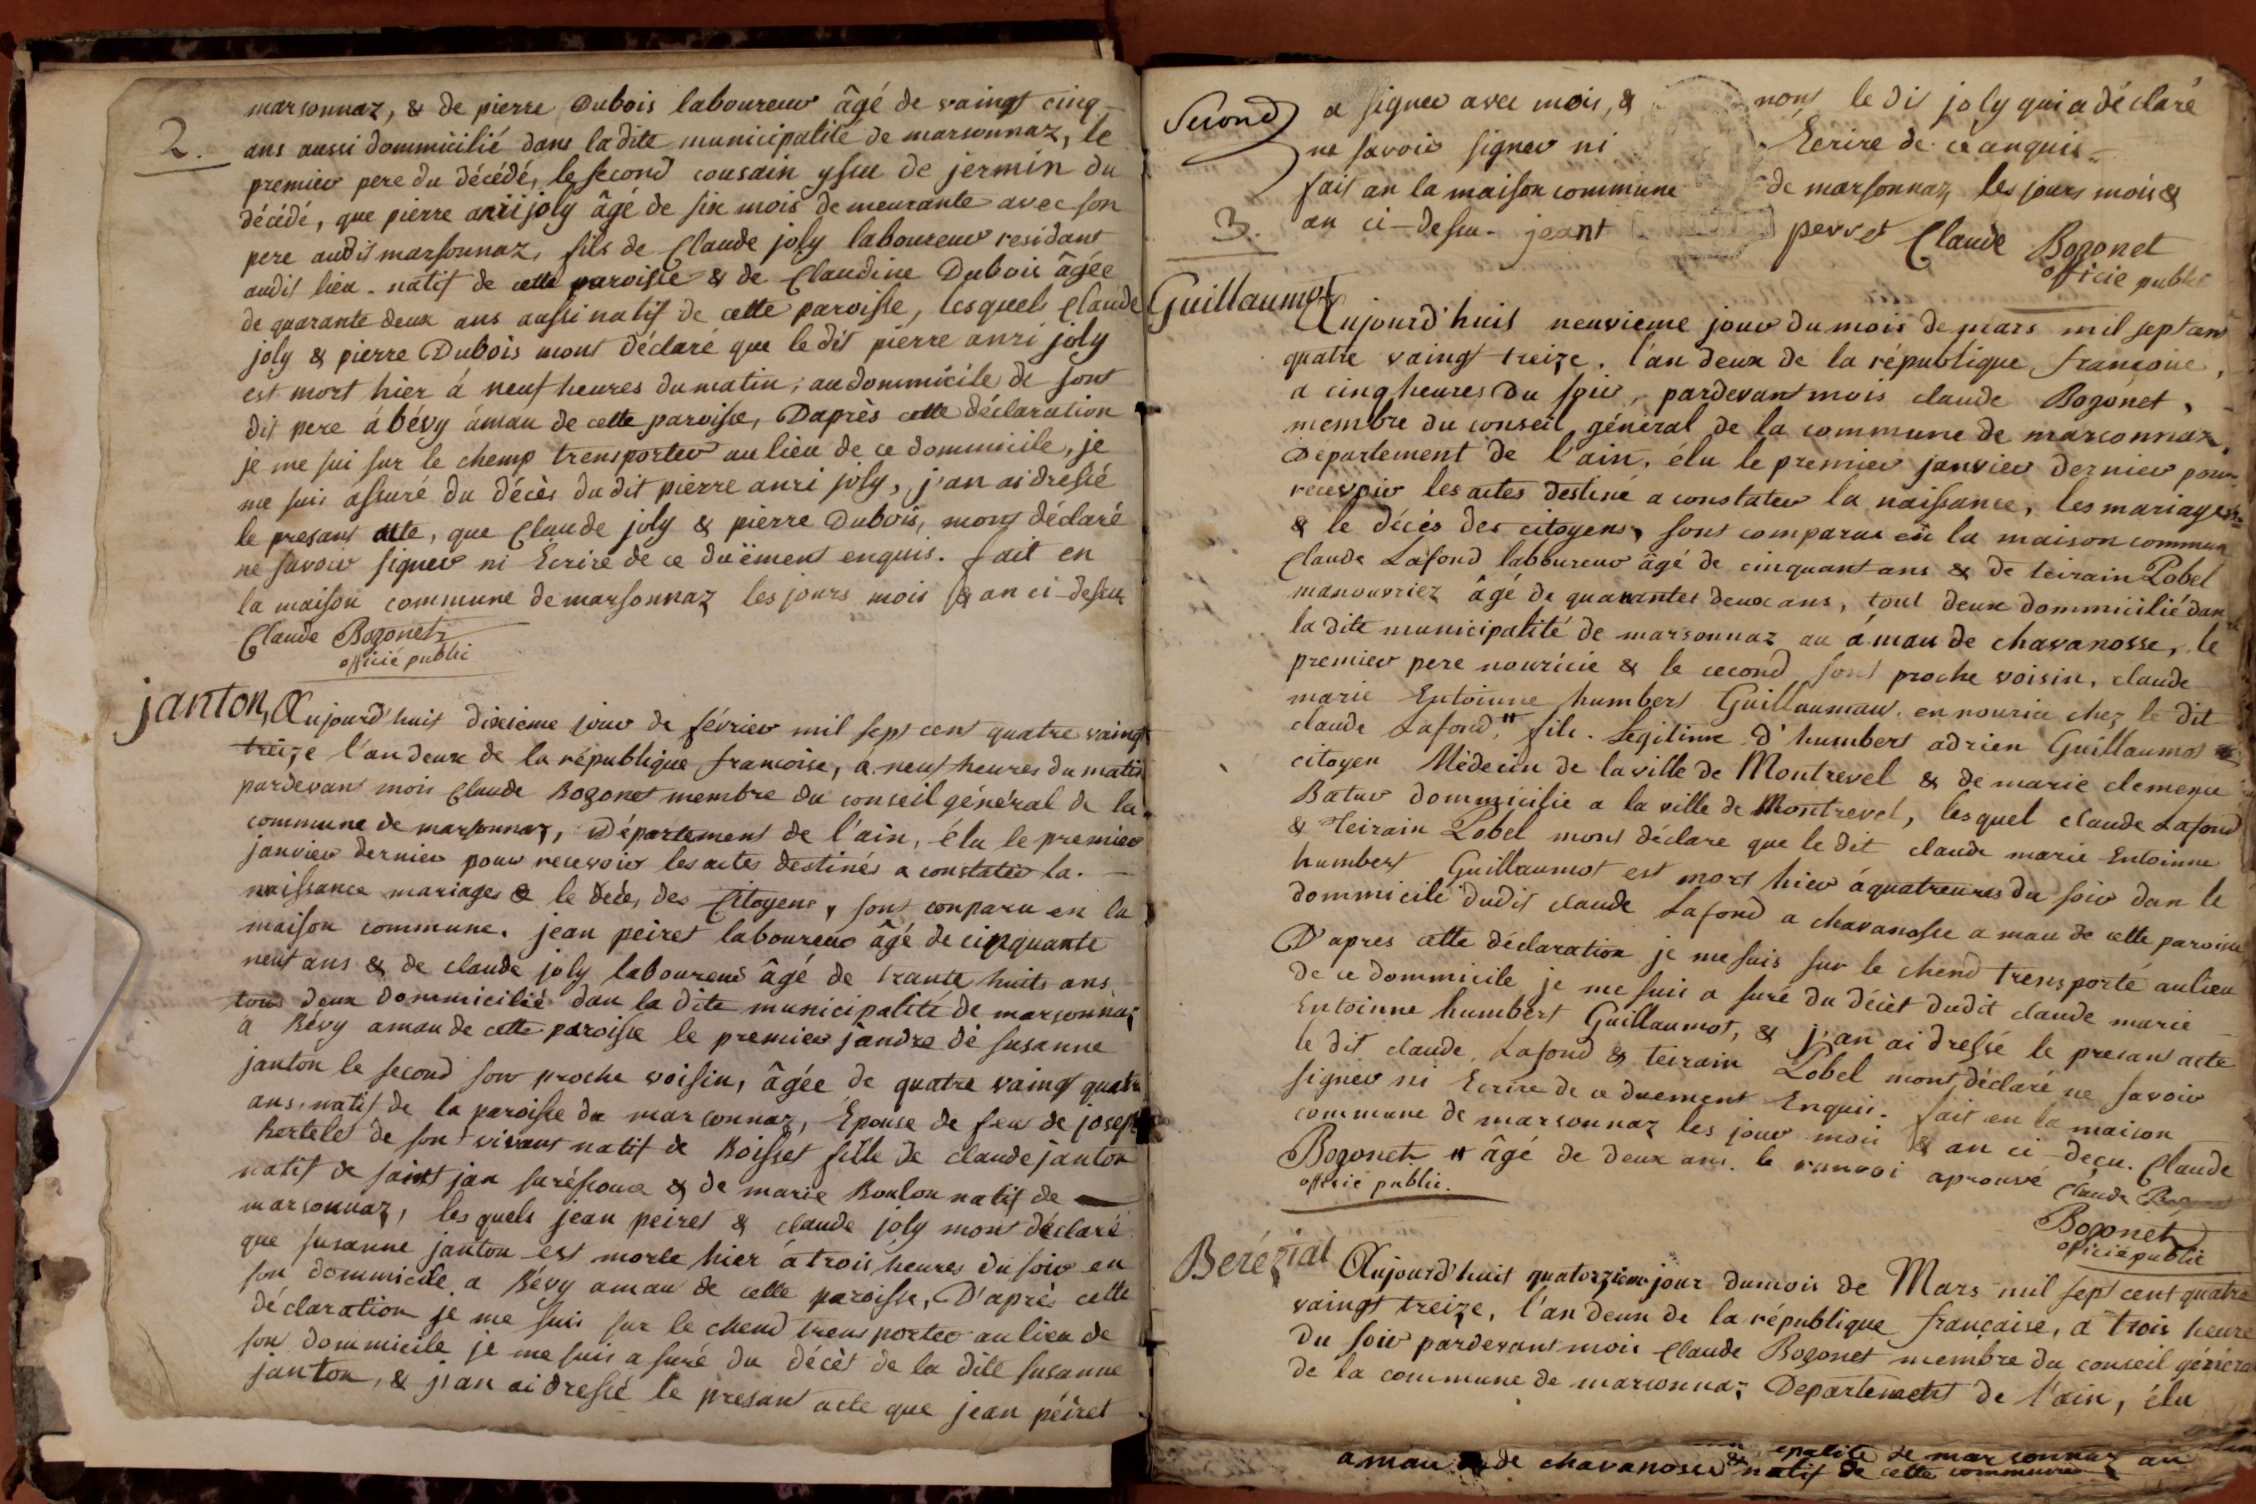 2.
marsonnaz, & de pierre Dubois laboureur âgé de vaingt cinq
ans aussi dommicilié dans la dite municipalité de marsonnaz, le
premier pere du décédé, le second cousain yssu de jermin du
décédé, que pierre anri joly âgé de six mois demeurante avec son
pere audit marsonnaz, fils de Claude joly laboureur residant
audit lieu natif de cette paroisse & de Claudine Dubois âgée
de quarante deux ans aussi natif de cette paroisse, lesquels Claude
joly & pierre Dubois mont déclaré que le dit pierre anri joly
est mort hier á neuf heures du matin, au dommicile de sont
dit pere á bévy ámau de cette paroisse, Daprès cette déclaration
je me sui sur le chemp trensporter au lieu de ce dommicile, je
me suis assuré du décès du dit pierre anri joly, j'an ai dressé
le presant acte, que Claude joly & pierre Dubois, mont déclaré
ne savoir signer ni Ecrire de ce duëment enquis. fait en
la maison commune de marsonnaz les jours mois & an ci-dessu
Claude Bogonet
officié public
janton, Aujourd'huit dixieme jour de février mil sept cent quatre vaingt
treize l'an deux de la république francoise, a neuf heures du matin
pardevant mois Claude Bogonet membre du conseil général de la
commune de marsonnaz, Département de l'ain, élu le premier
janvier dernier pour recevoir les actes destinés a constater la
naissance mariages & le décès des Citoyens, sont conparu en la
maison commune. jean peiret laboureur âgé de cinquante
neuf ans & de claude joly laboureur âgé de trante huits ans
tous deux dommicilié dan la dite municipalité de marsonnaz
a Bévy amau de cette paroisse le premier jandre de susanne
janton le second son proche voisin, âgée de quatre vaingt quatre
ans, natif de la paroisse de marsonnaz, Epouse de feu de joseph
hertelé de son vivant natif de Boisset fille de claude janton
natif de saint jan surésouce & de marie Boulon natif de
marsonnaz, lesquels jean peiret & claude joly mont déclaré
que susanne janton est morte hier á trois heures du soir en
son dommicile a Bévy amau de cette paroisse, D'après cette
déclaration je me suis sur le chend trensporter au lieu de
son dommicile je me suis a suré du décèt de la dite susanne
janton, & j'an ai dressé le presant acte que jean péiret
Second a signer avec mois, & nont le dit joly qui a déclaré
ne savoir signer ni Ecrire de cé anquis
fait an la maison commune de marsonnaz les jours mois &
3.
an ci-dessu jeant perret Claude Bogonet
officie public
Guillaumot
Aujourd'huit neuvieme jour du mois de mars mil sept an
quatre vaingt treize, l'an deux de la république francoise,
a cinq heures du soir, pardevant mois claude Bogonet,
membre du conseil général de la commune de marsonnaz,
Département de l'ain, élu le premier janvier dernier pour
recevoir les actes destiné a constater la naissance, les mariages
& le décès des citoyens, sont comparue en la maison commun
Claude Lafond laboureur âgé de cinquant ans & de teirain Pobel
manouvriez âgé de quarantes deux ans, tout deux dommicilié dan
la dite municipalité de marsonnaz au ámau de chavanosse, le
premier pere nouricie & le cecond sont proche voisin, claude
marie Entoinne humbert Guillaumau en nourice chez le dit
claude Lafond, # fils. Legitime d'humbert adrien Guillaumot
citoyen Médecin de la ville de Montrevel & de marie clemence
Batur dommicilie a la ville de Montrevel, lesquel claude Lafond
& teirain Pobel mont déclare que le dit claude marie Entoinne
humbert Guillaumot est mort hier á quatreures du soir dan le
dommicilé dudit claude Lafond a chavanosse a mau de cette paroisse
D'apres cette déclaration je me suis sur le chend trensporté au lieu
de ce dommicile je me suis a suré du décèt dudit claude marie
Entoinne humbert Guillaumot, & j'an ai dressé le presant acte
le dit claude Lafond & teirain Pobel mont déclaré ne savoir
signer ni Ecrire de ce duement Enquis. fait en la maison
commune de marsonnaz les jour mois & an ci-deçu. Claude
Bogonet # âgé de deux ans. le ranvoi aprouvé Claude Bog
officié public.
Bogonet
officié public
Berézial Aujourd'huit quatorzieme jour du mois de Mars mil sept cent quatre
vaingt treize, l'an deux de la république française, a trois heure
du soir pardevant mois Claude Bogonet membre du conseil généra
de la commune de marsonnaz Departement de l'ain, élu
epalité de marsonnaz au
amau de chavanosse & natif de cette commune